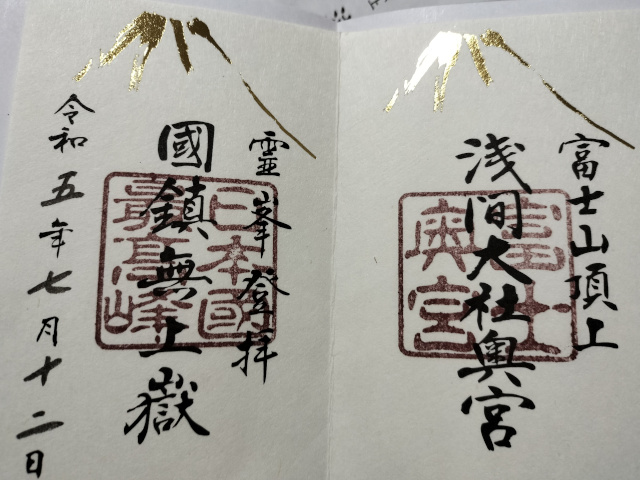 富士山頂上
浅間大社奥宮
富士
奥宮
霊峯登拝
國鎮無上嶽
日本國
最高峰
令和五年七月十二日